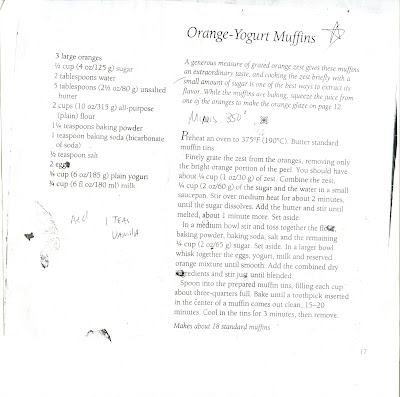 Orange-Yogurt Muffins
3 large oranges
½ cup (4 oz/125 g) sugar
2 tablespoons water
5 tablespoons (2½ oz/80 g) unsalted
butter
2 cups (10 oz/315 g) all-purpose
(plain) flour
1¼ teaspoons baking powder
1 teaspoon baking soda (bicarbonate
of soda)
½ teaspoon salt
2 eggs
¾ cup (6 oz/185 g) plain yogurt
¾ cup (6 fl oz/180 ml) milk
Add 1 Teas
Vanilla
A generous measure of grated orange zest gives these muffins
an extraordinary taste, and cooking the zest briefly with a
small amount of sugar is one of the best ways to extract its
flavor. While the muffins are baking, squeeze the juice from
one of the oranges to make the orange glaze on page 12.
Minis 350°
Preheat an oven to 375°F (190°C). Butter standard
muffin tins.
Finely grate the zest from the oranges, removing only
the bright orange portion of the peel. You should have
about ¼ cup (1 oz/30 g) of zest. Combine the zest,
¼ cup (2 oz/60 g) of the sugar and the water in a small
saucepan. Stir over medium heat for about 2 minutes,
until the sugar dissolves. Add the butter and stir until
melted, about 1 minute more. Set aside.
In a medium bowl stir and toss together the flour,
baking powder, baking soda, salt and the remaining
¼ cup (2 oz/65 g) sugar. Set aside. In a larger bowl
whisk together the eggs, yogurt, milk and reserved
orange mixture until smooth. Add the combined dry
ingredients and stir just until blended.
Spoon into the prepared muffin tins, filling each cup
about three-quarters full. Bake until a toothpick inserted
in the center of a muffin comes out clean, 15–20
minutes. Cool in the tins for 3 minutes, then remove.
Makes about 18 standard muffins
17